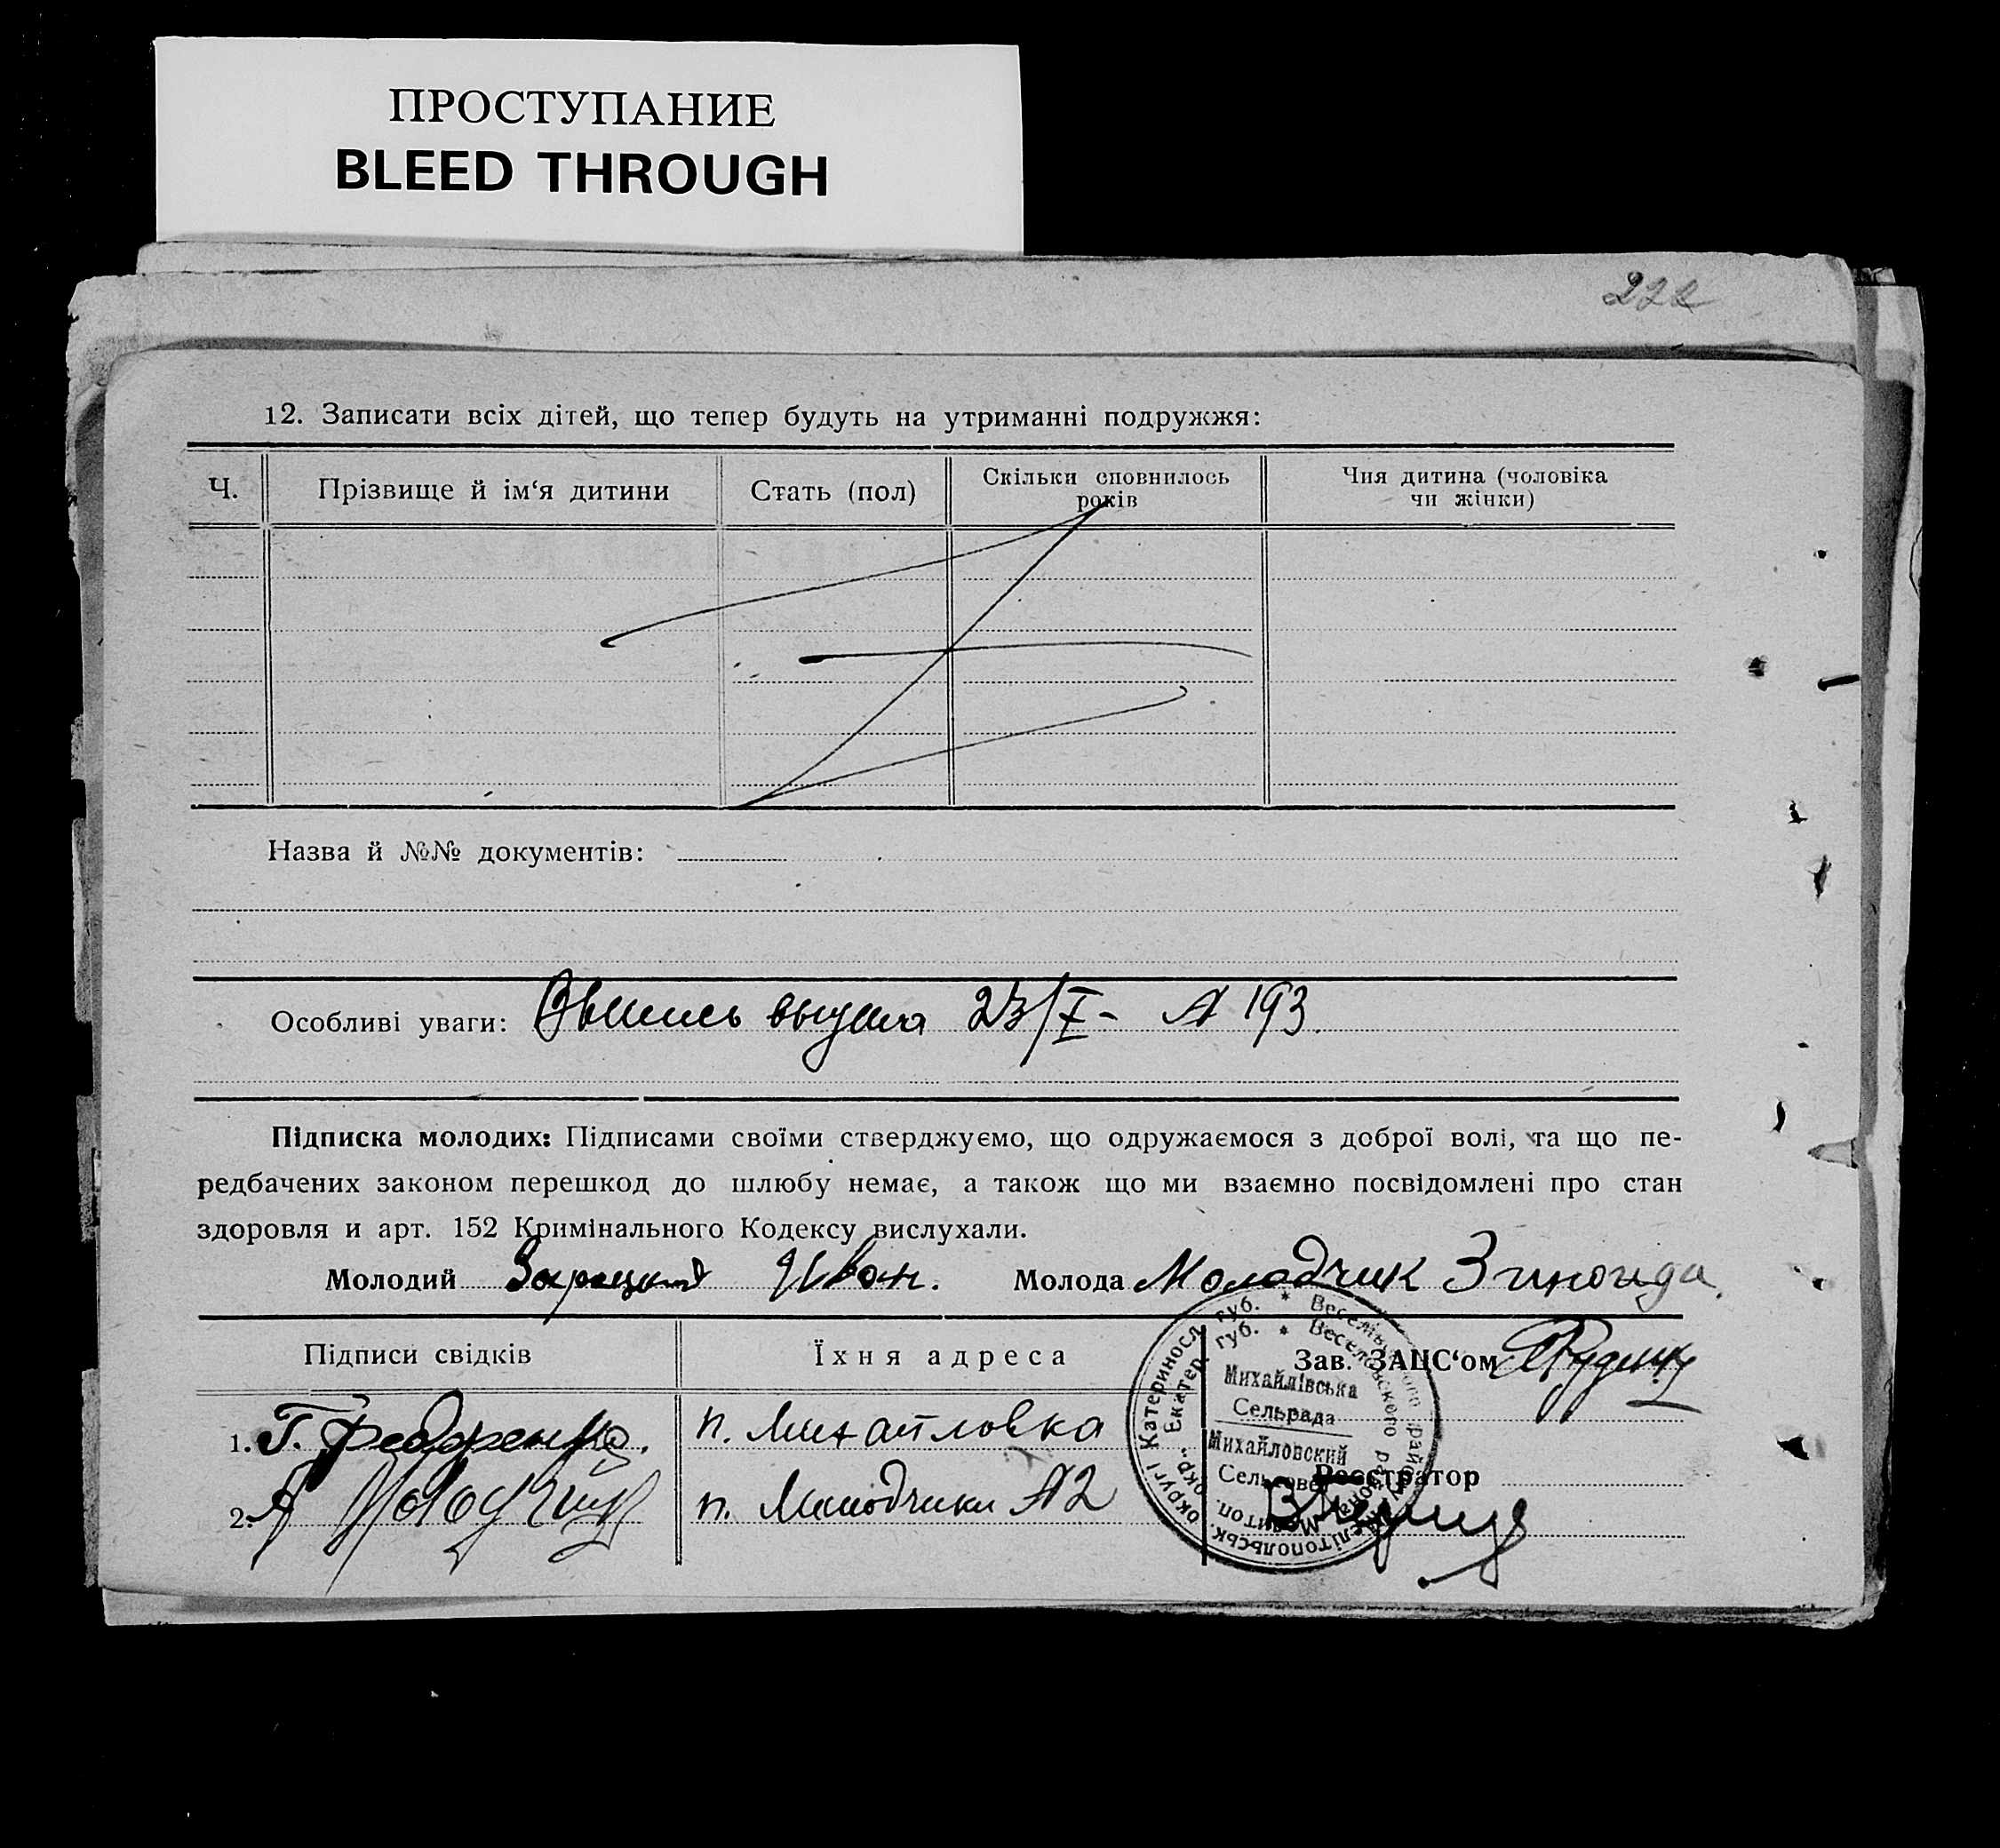 ПРОСТУПАНИЕ
BLEED THROUGH
222
12. Записати всіх дітей, що тепер будуть на утриманні подружжя:
Ч. Прізвище й ім‘я дитини Стать (пол) Скільки сповнилось років Чия дитина (чоловіка чи жінки)
Назва й №№ документів:
Особливі уваги: 23/X- № 193.
Підписка молодих: Підписами своїми стверджуємо, що одружаємося з доброї волі, та що пе-
редбачених законом перешкод до шлюбу немає, а також що ми взаємно посвідомлені про стан
здоровля и арт. 152 Кримінального Кодексу вислухали.
Молодий Зарецкий Иван. Молода Молодчик Зиноида.
Підписи свідків Їхня адреса Зав. ЗАЦС‘ом Руденко
1. Г. Федоренко. п. Михайловка
2. А Молодчик п. Молодчики № 2
Реєстратор
Катериносл. губ. * Весельського району Мелітопольськ. округі
Екатер. губ. * Веселовского района Мелитоп. окр.
Михайлівська
Сельрада
Михайловский
Сельсовет